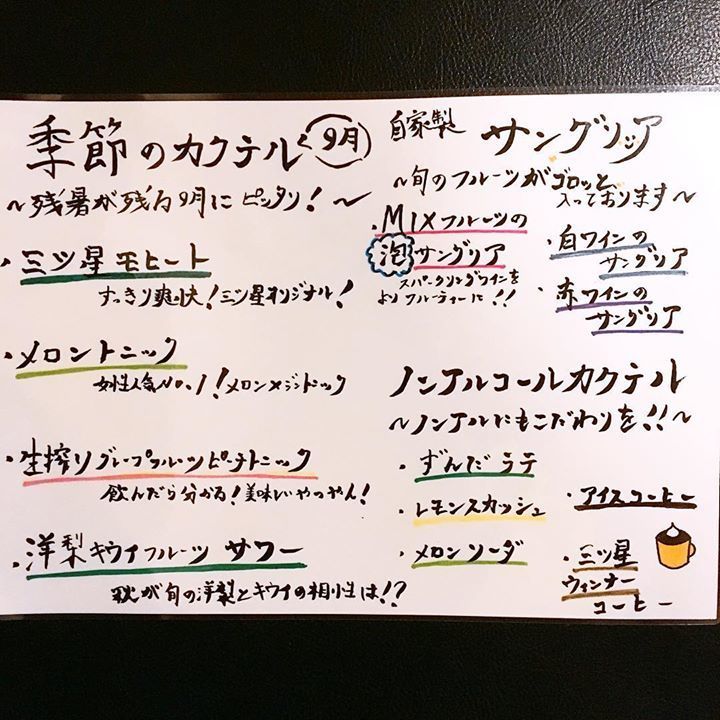 季節のカクテル 9月
～残暑が残る9月にピッタリ！～
・三ツ星モヒート
すっきり爽快！三ツ星オリジナル！
・メロントニック
女性人気No.1！メロン×ジントニック
・生搾りグレープフルーツピーチトニック
飲んだら分かる！美味しいやつやん！
・洋梨キウイフルーツ サワー
秋が旬の洋梨とキウイの相性は！？
自家製 サングリッア
～旬のフルーツがゴロッと
入っております～
・MIXフルーツの
泡サングリア
スパークリングワインを
よりフルーティーに！！
・白ワインの
サングリア
・赤ワインの
サングリア
ノンアルコールカクテル
～ノンアルにもこだわりを！！～
・ずんだラテ
・レモンスカッシュ
・メロンソーダ
・アイスコーヒー
・三ツ星
ウィンナー
コーヒー